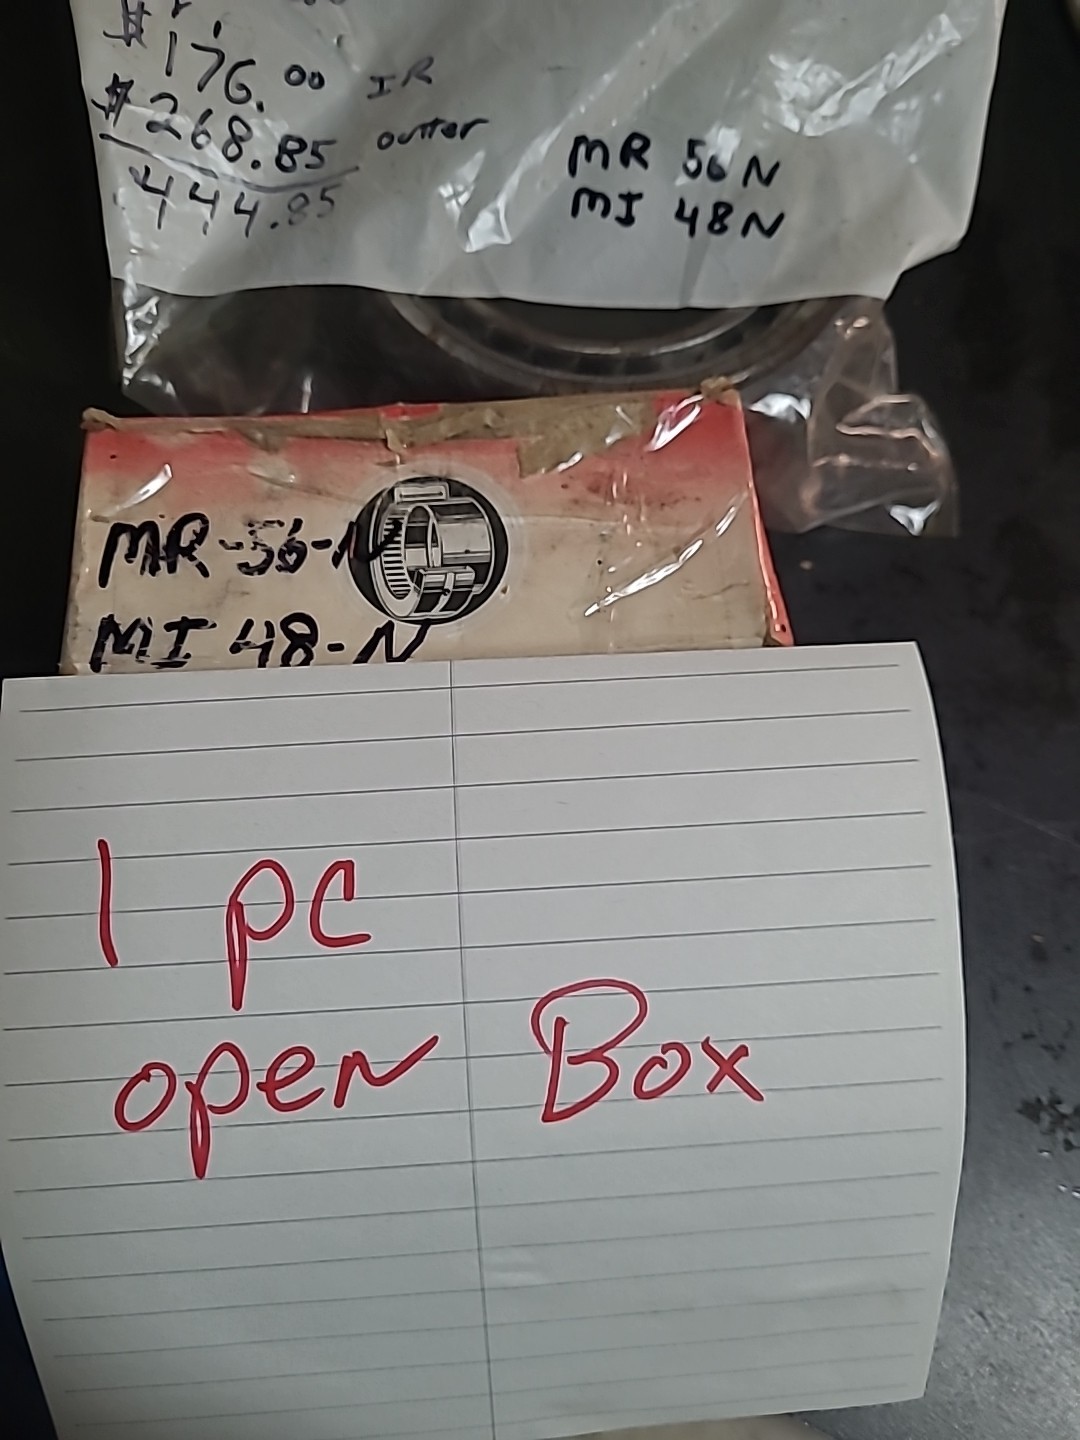 $176.00 IR
$268.85 outter
444.85
MR 56N
MI 48N
MR-56-N
MI 48-N
1 pc
open Box